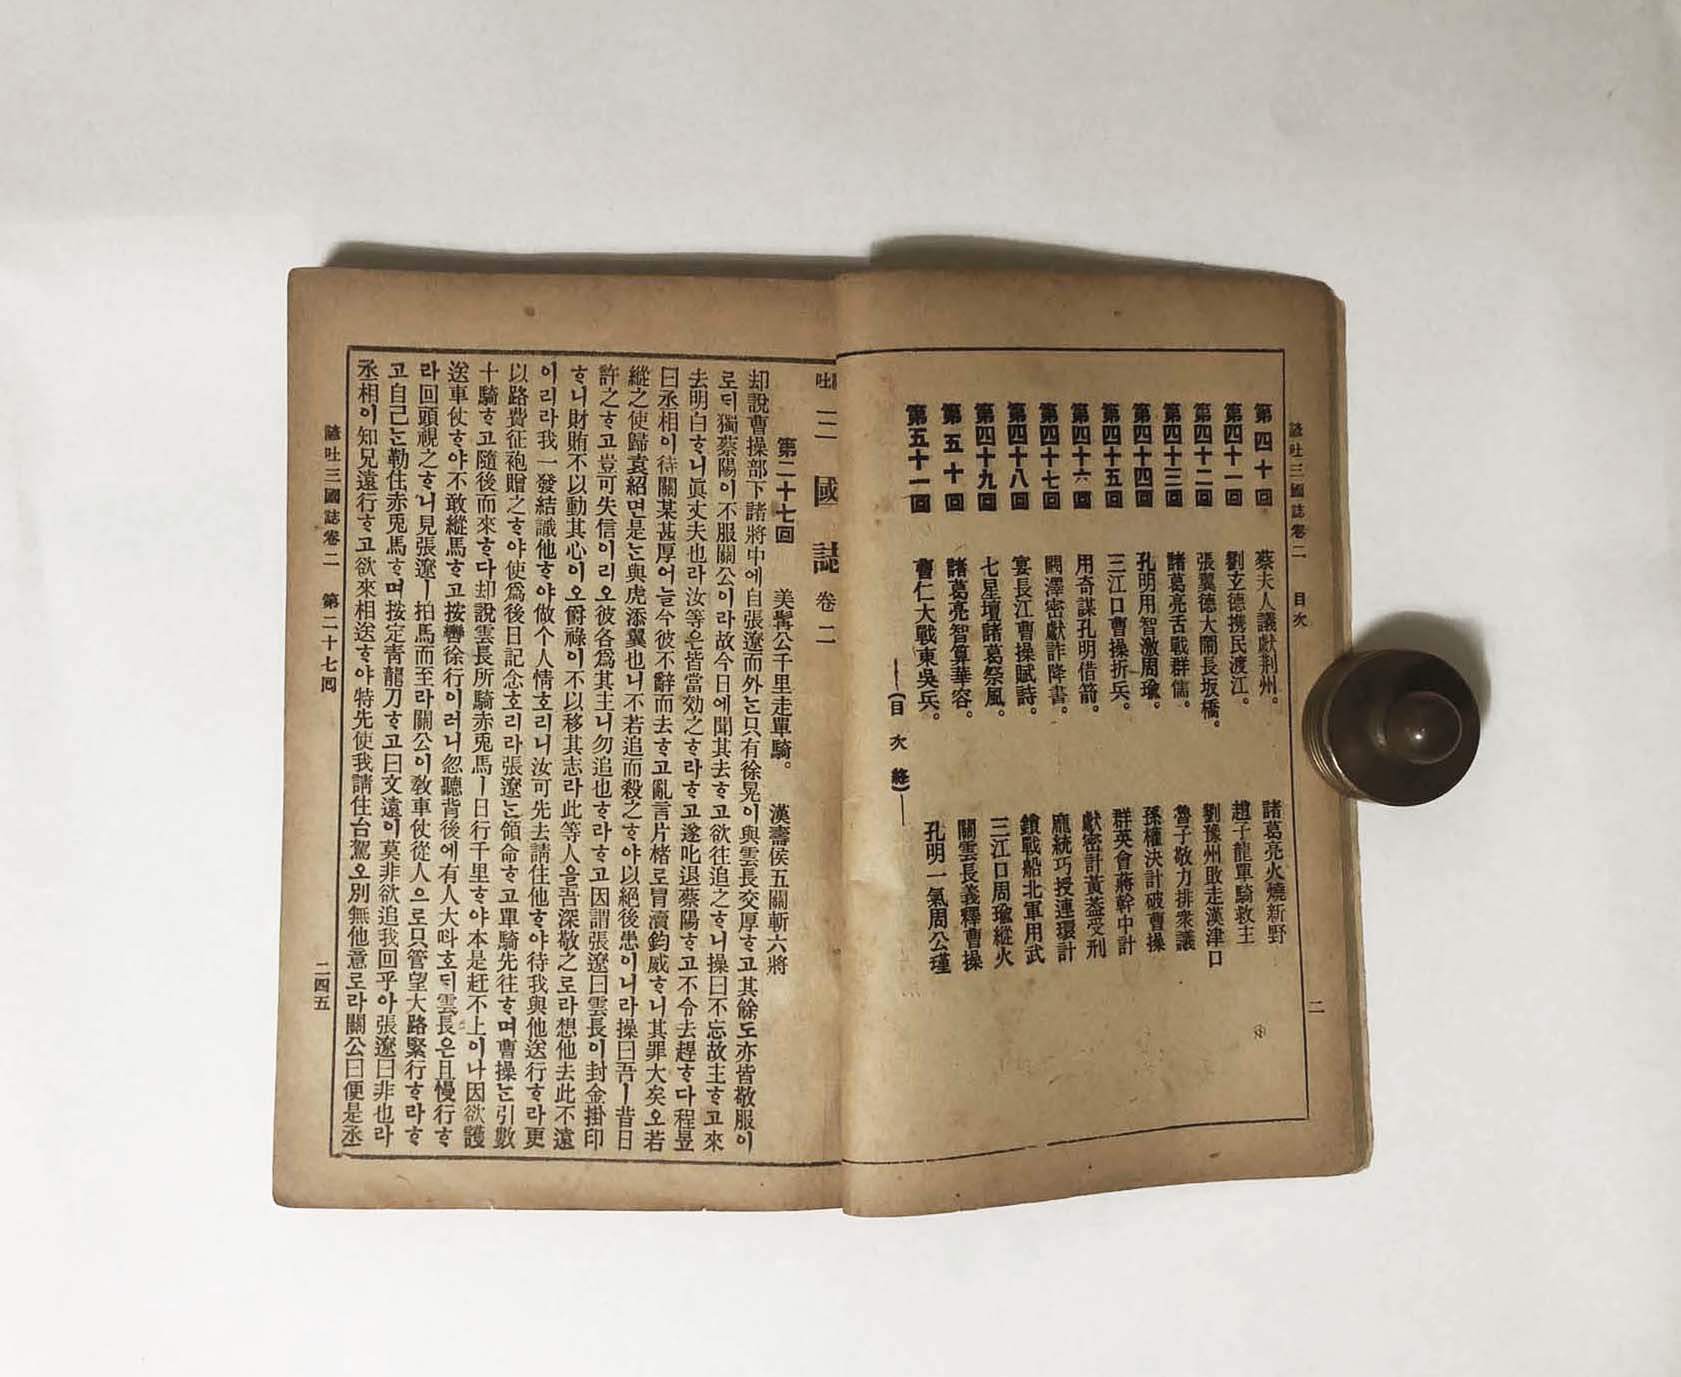 諺吐三國誌卷二 目次 二
第四十回 蔡夫人議獻荆州。 諸葛亮火燒新野
第四十一回 劉玄德携民渡江。 趙子龍單騎救主
第四十二回 張翼德大鬧長坂橋。 劉豫州敗走漢津口
第四十三回 諸葛亮舌戰群儒。 魯子敬力排衆議
第四十四回 孔明用智激周瑜。 孫權決計破曹操
第四十五回 三江口曹操折兵。 群英會蔣幹中計
第四十六回 用奇謀孔明借箭。 獻密計黃蓋受刑
第四十七回 闞澤密獻詐降書。 龐統巧授連環計
第四十八回 宴長江曹操賦詩。 鎖戰船北軍用武
第四十九回 七星壇諸葛祭風。 三江口周瑜縱火
第五十回 諸葛亮智算華容。 關雲長義釋曹操
第五十一回 曹仁大戰東吳兵。 孔明一氣周公瑾
——(目次 終)——
吐三國誌 卷二
第二十七回 美髯公千里走單騎。 漢壽侯五關斬六將
却說曹操部下諸將中에自張遼而外ᄂᆞᆫ只有徐晃이與雲長交厚ᄒᆞ고其餘도亦皆敬服이
로ᄃᆡ獨蔡陽이不服關公이라故今日에聞其去ᄒᆞ고欲往追之ᄒᆞ니操曰不忘故主ᄒᆞ고來
去明白ᄒᆞ니眞丈夫也라汝等은皆當効之ᄒᆞ라ᄒᆞ고遂叱退蔡陽ᄒᆞ고不令去趕ᄒᆞ다程昱
曰丞相이待關某甚厚어늘今彼不辭而去ᄒᆞ고亂言片楮로冒瀆鈞威ᄒᆞ니其罪大矣오若
縱之使歸袁紹면是ᄂᆞᆫ與虎添翼也니不若追而殺之ᄒᆞ야以絕後患이니라操曰吾ㅣ昔日
許之ᄒᆞ고豈可失信이리오彼各爲其主니勿追也ᄒᆞ라ᄒᆞ고因謂張遼曰雲長이封金掛印
ᄒᆞ니財賄不以動其心이오爵祿이不以移其志라此等人을吾深敬之로라想他去此不遠
이리라我一發結識他ᄒᆞ야做个人情ᄒᆞ리니汝可先去請住他ᄒᆞ야待我與他送行ᄒᆞ라更
以路費征袍贈之ᄒᆞ야使爲後日記念ᄒᆞ리라張遼ᄂᆞᆫ領命ᄒᆞ고單騎先往ᄒᆞ며曹操ᄂᆞᆫ引數
十騎ᄒᆞ고隨後而來ᄒᆞ다却說雲長所騎赤兎馬ㅣ日行千里ᄒᆞ야本是赶不上이나因欲護
送車仗ᄒᆞ야不敢縱馬ᄒᆞ고按轡徐行이러니忽聽背後에有人大呌ᄒᆞ되雲長은且慢行ᄒᆞ
라回頭視之ᄒᆞ니見張遼ㅣ拍馬而至라關公이敎車仗從人으로只管望大路緊行ᄒᆞ라ᄒᆞ
고自己ᄂᆞᆫ勒住赤兎馬ᄒᆞ며按定靑龍刀ᄒᆞ고曰文遠이莫非欲追我回乎아張遼曰非也라
丞相이知兄遠行ᄒᆞ고欲來相送ᄒᆞ야特先使我請住台駕오別無他意로라關公曰便是丞
諺吐三國誌卷二 第二十七回 二四五